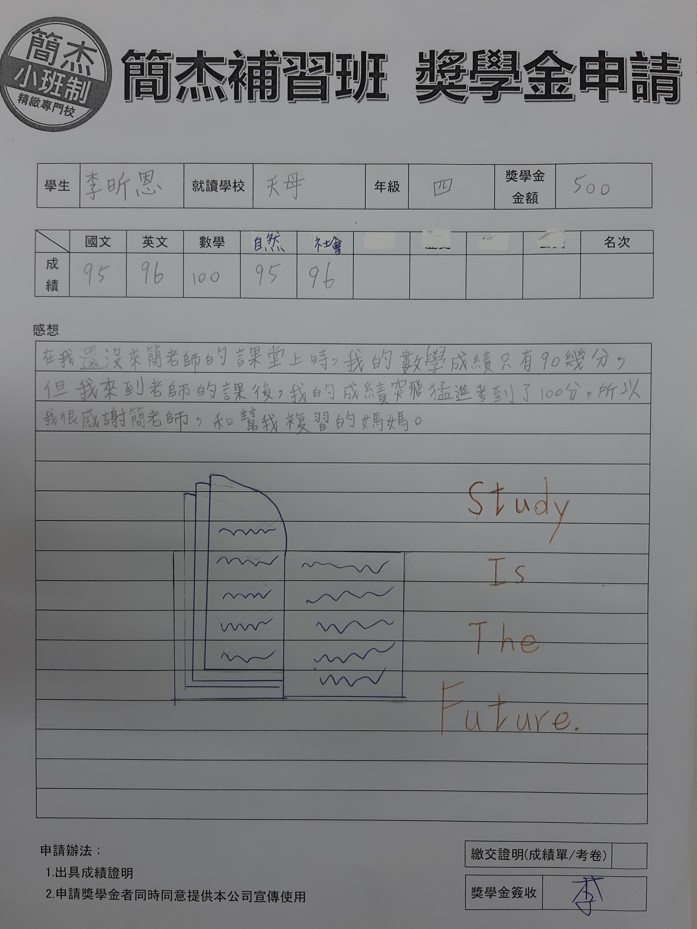 簡杰
小班制
精緻專門校
簡杰補習班 獎學金申請
學生 李昕恩 就讀學校 天母 年級 四 獎學金金額 500
國文 英文 數學 自然 社會 名次
成績 95 96 100 95 96
感想
在我還沒來簡老師的課堂上時，我的數學成績只有90幾分，
但我來到老師的課後，我的成績突飛猛進考到了100分。所以
我很感謝簡老師，和幫我複習的媽媽。
Study
Is
The
Future.
申請辦法：
1.出具成績證明
2.申請獎學金者同時同意提供本公司宣傳使用
繳交證明(成績單/考卷)
獎學金簽收 李